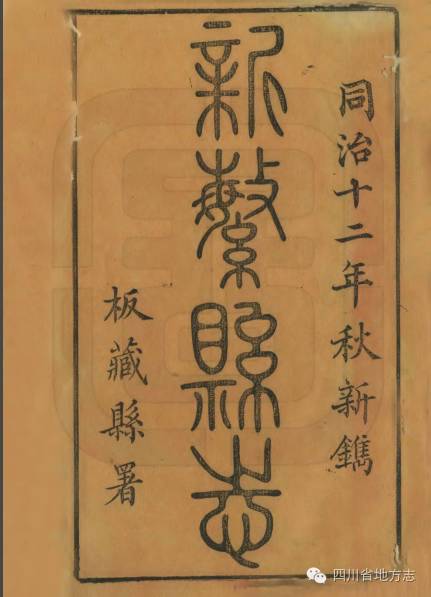 同治十二年秋新鐫
新繁縣志
板藏縣署
四川省地方志